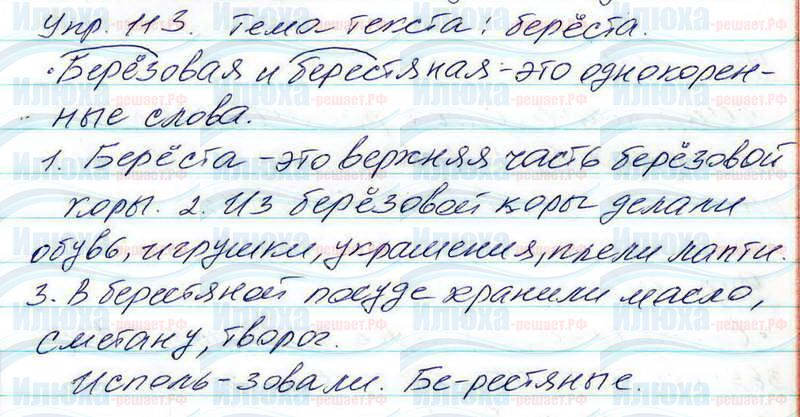 Упр. 113. Тема текста: берёста.
Берёзовая и берестяная - это однокорен-
ные слова.
1. Берёста - это верхняя часть берёзовой
коры. 2. Из берёзовой коры делали
обувь, игрушки, украшения, плели лапти.
3. В берестяной посуде хранили масло,
сметану, творог.
Исполь-зовали. Бе-рестяные.